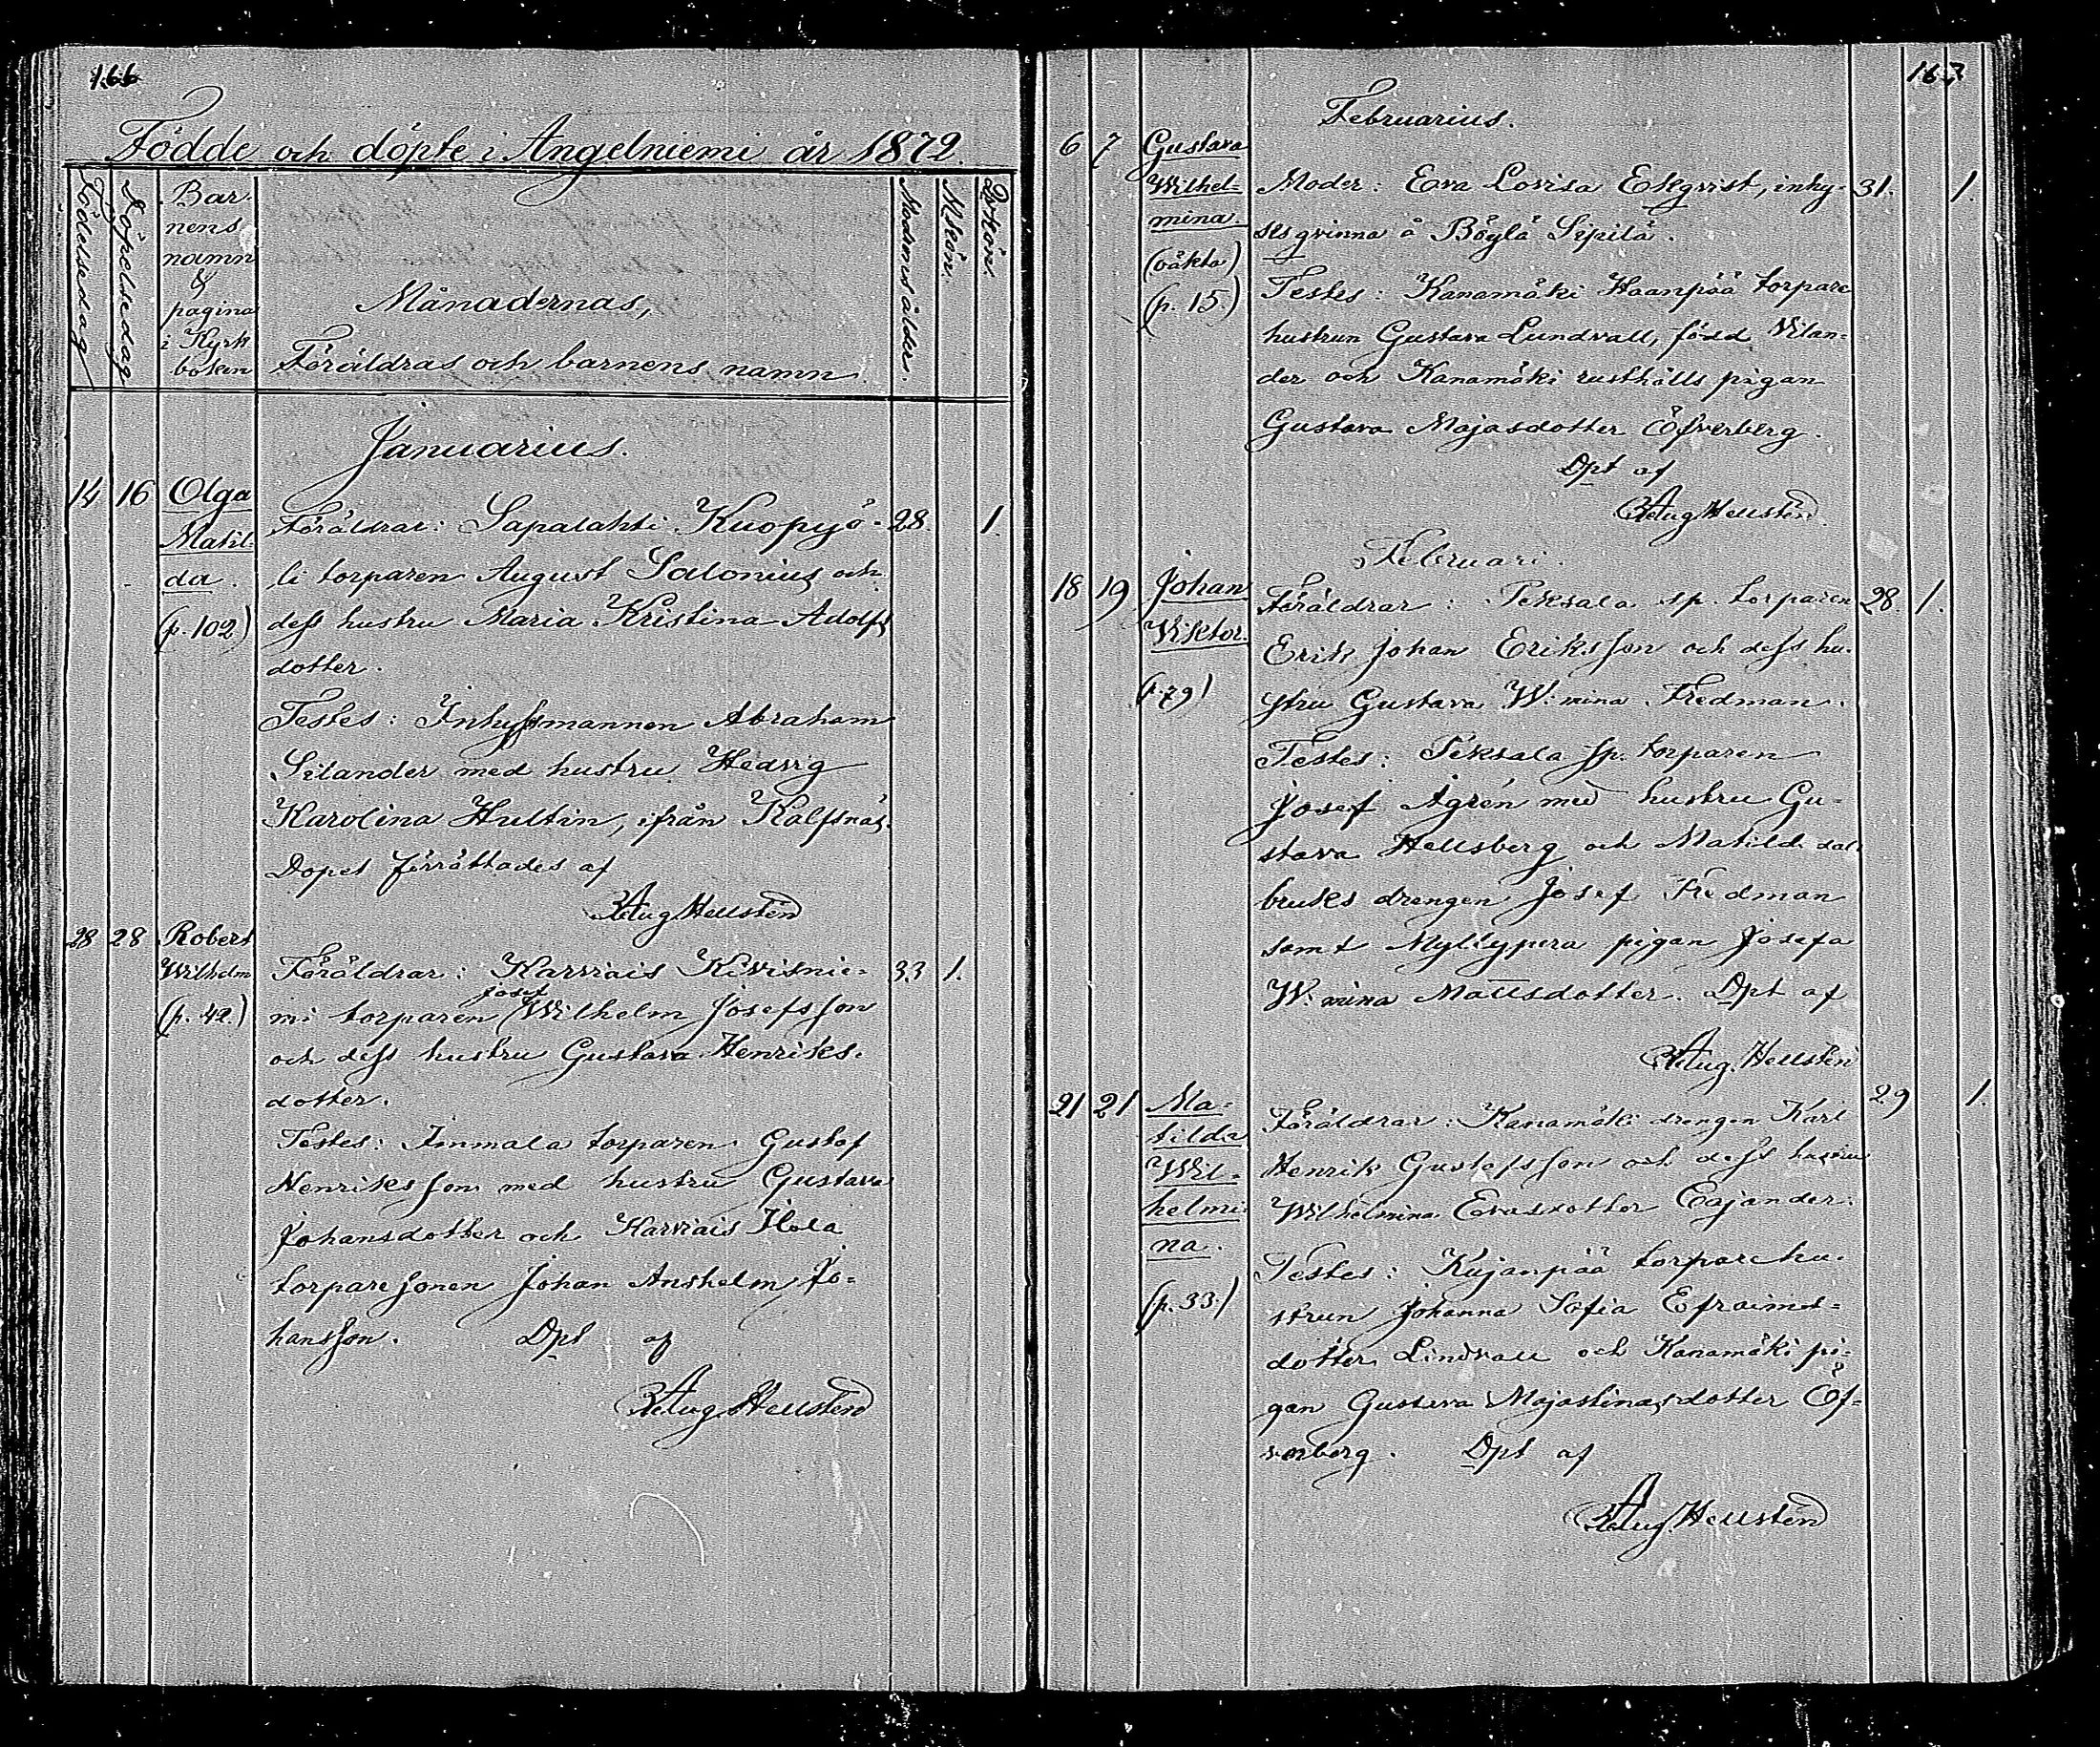 166
Födde och döpte i Angelniemi år 1872.
Födelsedag
Döpelsedag
Bar-
nens
namn
&
pagina
i Kyrk
boken
Månadernas,
Föräldras och barnens namn.
Moderns ålder.
M.kön.
Q.kön.
Januarius.
14 16 Olga
Matil-
da.
(p. 102)
Föräldrar: Sapalahti Kuopyö- 28. 1.
li torparen August Salonius och
dess hustru Maria Kristina Adolfs
dotter.
Testes: Inhysesmannen Abraham
Silander med hustru Hedvig
Karolina Hultin, ifrån Kalfsnäs.
Dopet förrättades af
Aug. Hellsten
28 28 Robert
Wilhelm
(p. 42.)
Föräldrar: Karviais Kivisnie- 33 1.
mi torparen Josef Wilhelm Josefsson
och dess hustru Gustava Henriks-
dotter.
Testes: Ammala torparen Gustof
Henriksson med hustru Gustava
Johansdotter och Karviais Ilola
torparesonen Johan Anshelm Jo-
hansson. Dpt af
Aug. Hellsten
167
Februarius.
6 7 Gustava
Wilhel-
mina
(oäkta)
(p. 15.)
Moder: Eva Lovisa Ekqvist, inhy- 31. 1.
sesqvinna å Böylä Sipilä.
Testes: Kanamäki Haanpää torpare
hustrun Gustava Lundvall, född Vilan-
der och Kanamäki rusthålls pigan
Gustava Majasdotter Öfverberg.
Dpt af
Aug Hellsten
Februari.
18 19 Johan
Viktor.
(p. 79)
Föräldrar: Peksala sp. torparen 28. 1.
Erik Johan Eriksson och dess hu-
stru Gustava W:mina Fredman.
Testes: Peksala sp. torparen
Josef Agrén med hustru Gu-
stava Hellsberg och Matild dal
bruks drengen Josef Fredman
samt Myllyperä pigan Josefa
W:mina Mattsdotter. Dpt af
Aug. Hellsten
21 21 Ma-
tilda
Wil-
helmi-
na.
(p. 33.)
Föräldrar: Kanamäki drengen Karl 29 1.
Henrik Gustofsson och dess hustru
Wilhelmina Evasdotter Cajander.
Testes: Kujanpää torparehu-
strun Johanna Sofia Efraims-
dotter Lindvall och Kanamäki pi-
gan Gustava Majastinasdotter Öf-
verberg. Dpt af
Aug. Hellsten